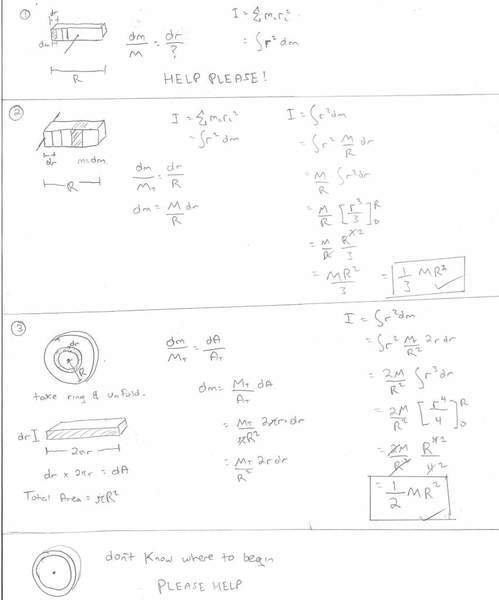 ①
dr
dm
R
dm/M = dr/?
I = Σ mᵢrᵢ²
= ∫r² dm
HELP PLEASE!
②
dr
m=dm
R
I = Σ mᵢrᵢ²
= ∫r² dm
dm/M_T = dr/R
dm = M/R dr
I = ∫r² dm
= ∫r² M/R dr
= M/R ∫r² dr
= M/R [r³/3]₀ᴿ
= M/R R^(3 2)/3
= MR²/3 = 1/3 MR² ✓
③
dr
R
take ring & unfold.
dr
2πr
dr x 2πr = dA
Total Area = πR²
dm/M_T = dA/A_T
dm = M_T/A_T dA
= M_T/πR² 2πr·dr
= M_T/R² 2r dr
I = ∫r² dm
= ∫r² M/R² 2r dr
= 2M/R² ∫r³ dr
= 2M/R² [r⁴/4]₀ᴿ
= 2M/R² R^(4 2)/4 2
= 1/2 MR² ✓
don't know where to begin
PLEASE HELP